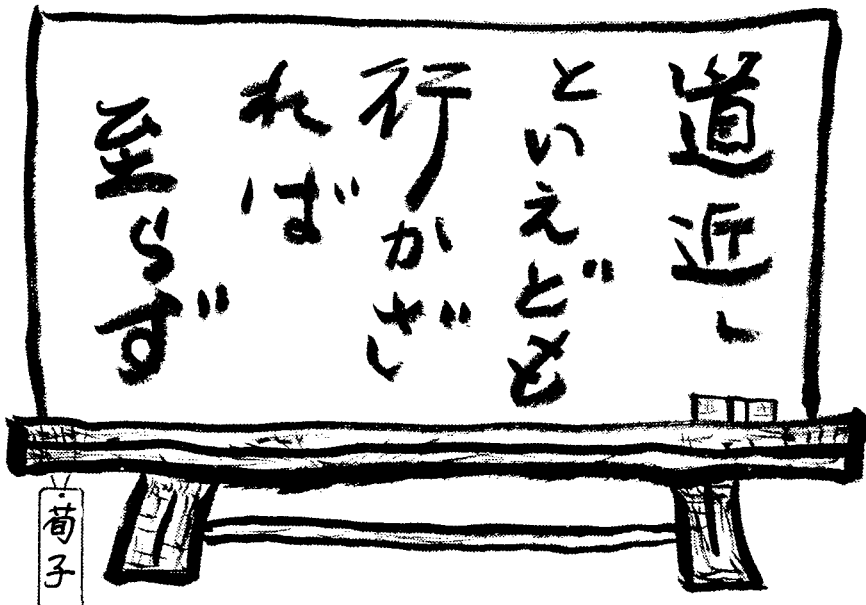 道近し
といえども
行かざ
れば
至らず
荀子